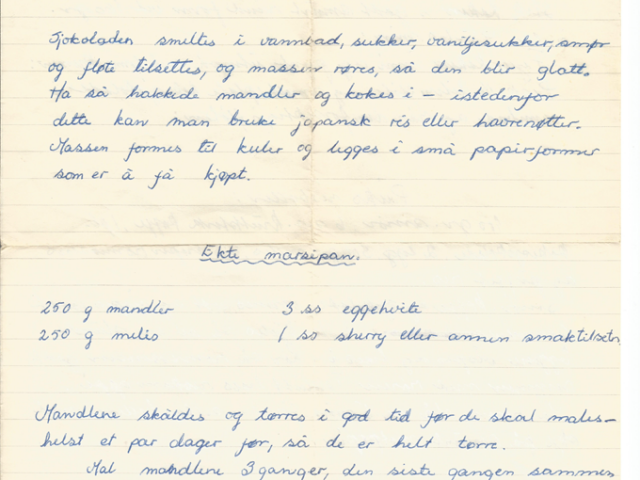 Sjokoladen smeltes i vannbad, sukker, vaniljesukker, smør
og fløte tilsettes, og massen røres, så den blir glatt.
Ha så hakkede mandler og kokes i – istedenfor
dette kan man bruke japansk ris eller havrenøtter.
Massen formes til kuler og legges i små papirformer
som er å få kjøpt.
Ekte marsipan.
250 g mandler 3 ss eggehvite
250 g melis 1 ss sherry eller annen smaktilsetn
Mandlene skåldes og tørres i god tid før de skal males –
helst et par dager før, så de er helt tørre.
Mal mandlene 3 ganger, den siste gangen sammen